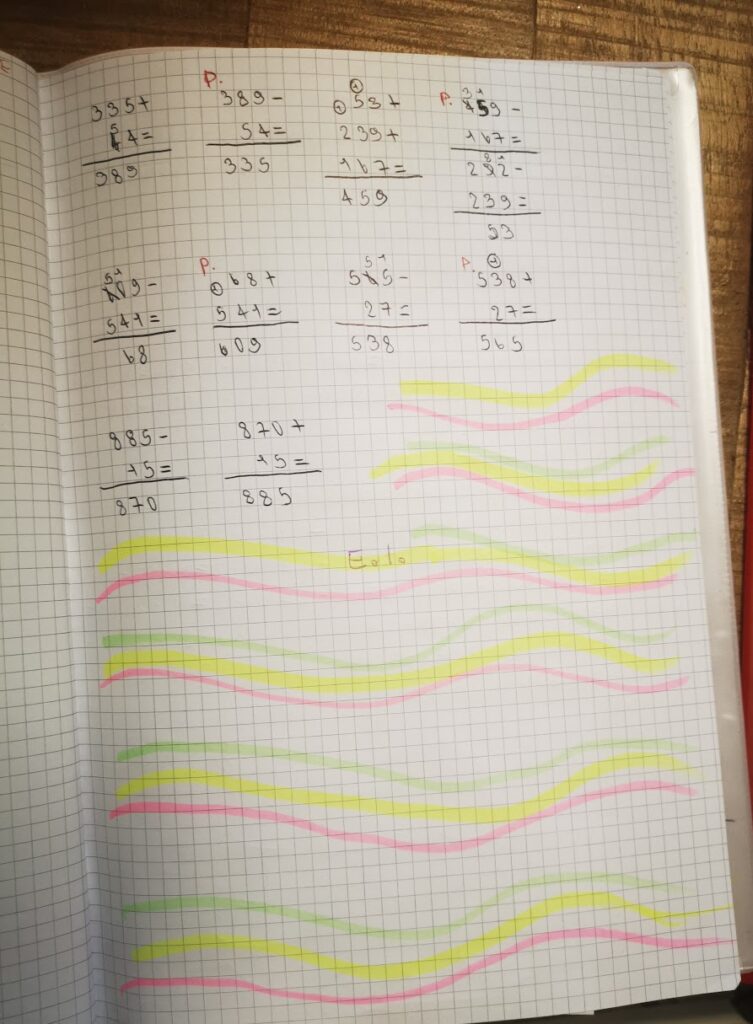 335+
54=
389
P.
389-
54=
335
1
1 53+
239+
167=
459
P.
3 1
459-
167=
8 1
292-
239=
53
5 1
609-
541=
68
P.
1 68+
541=
609
5 1
565-
27=
538
P.
1
538+
27=
565
885-
15=
870
870+
15=
885